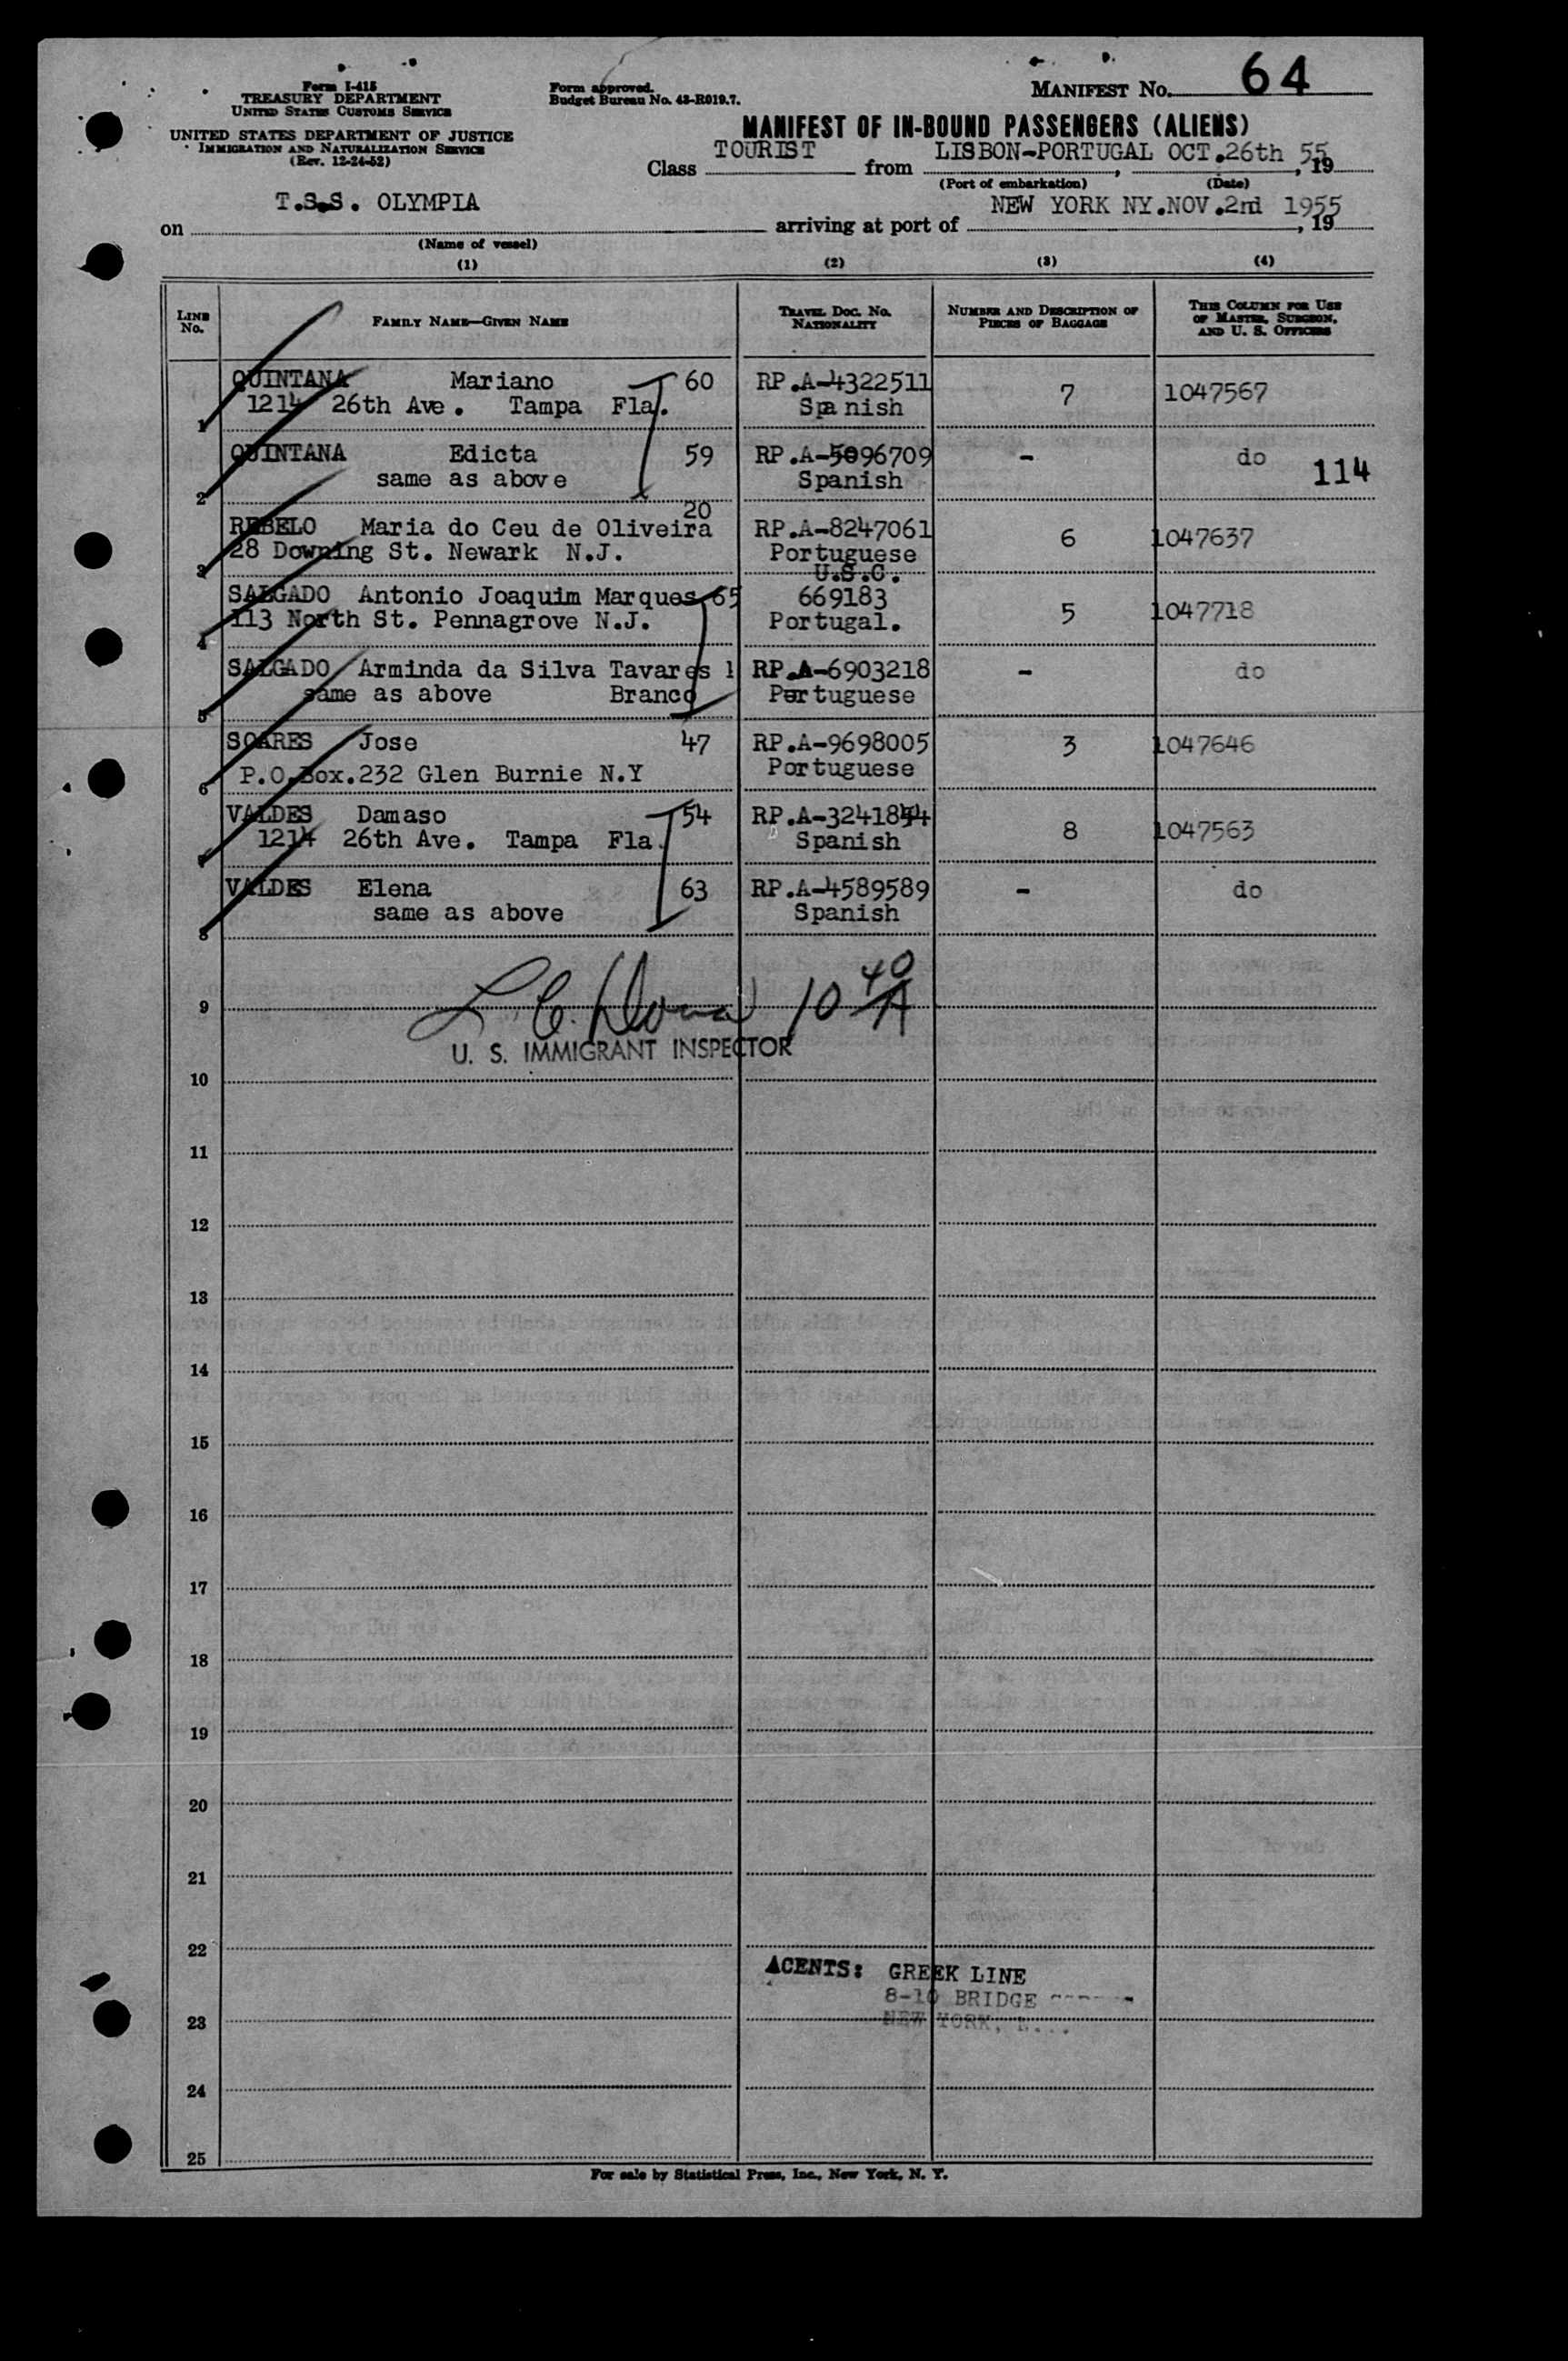 Form I-415
TREASURY DEPARTMENT
UNITED STATES CUSTOMS SERVICE
UNITED STATES DEPARTMENT OF JUSTICE
IMMIGRATION AND NATURALIZATION SERVICE
(Rev. 12-24-52)
Form approved.
Budget Bureau No. 43-R019.7.
MANIFEST No. 64
MANIFEST OF IN-BOUND PASSENGERS (ALIENS)
Class TOURIST from LISBON-PORTUGAL OCT.26th 55, 19
(Port of embarkation) (Date)
on T.S.S. OLYMPIA arriving at port of NEW YORK NY.NOV.2nd 1955, 19
(Name of vessel)
(1) (2) (3) (4)
LINE No. FAMILY NAME—GIVEN NAME TRAVEL DOC. No. NATIONALITY NUMBER AND DESCRIPTION OF PIECES OF BAGGAGE THIS COLUMN FOR USE OF MASTER, SURGEON, AND U. S. OFFICERS
QUINTANA Mariano 60 RP.A-4322511 7 1047567
1 1214 26th Ave. Tampa Fla. Spanish
QUINTANA Edicta 59 RP.A-5096709 - do 114
2 same as above Spanish
20
REBELO Maria do Ceu de Oliveira RP.A-8247061 6 1047637
3 28 Downing St. Newark N.J. Portuguese
U.S.C.
SALGADO Antonio Joaquim Marques 65 669183 5 1047718
4 113 North St. Pennagrove N.J. Portugal.
SALGADO Arminda da Silva Tavares RP.A-6903218 - do
5 same as above Branco Portuguese
SOARES Jose 47 RP.A-9698005 3 1047646
6 P.O.Box.232 Glen Burnie N.Y Portuguese
VALDES Damaso 54 RP.A-3241844 8 1047563
7 1214 26th Ave. Tampa Fla. Spanish
VALDES Elena 63 RP.A-4589589 - do
8 same as above Spanish
9 10 40/A
U. S. IMMIGRANT INSPECTOR
10
11
12
13
14
15
16
17
18
19
20
21
22
AGENTS: GREEK LINE
8-10 BRIDGE
23 NEW YORK,
24
25
For sale by Statistical Press, Inc., New York, N. Y.